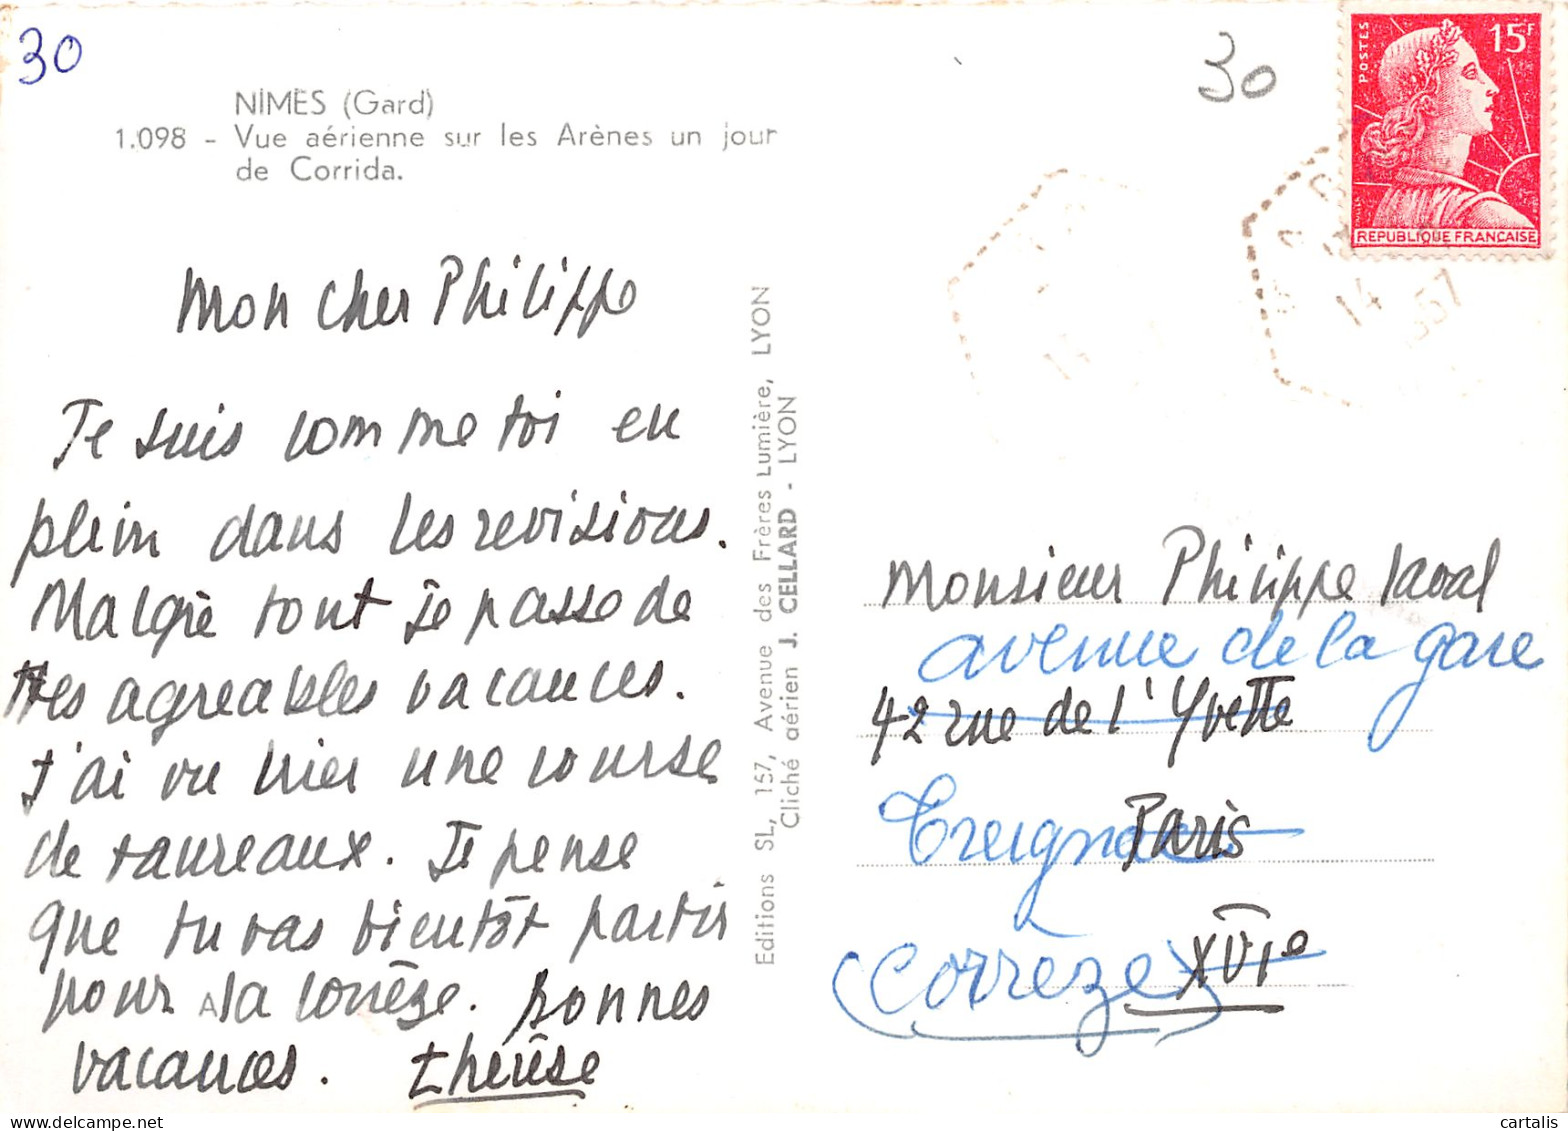 30
NIMES (Gard)
1.098 - Vue aérienne sur les Arènes un jour
de Corrida.
Mon cher Philippe
Je suis comme toi en
plein dans les revisions.
Malgrè tout je passe de
tres agreables vacances.
J'ai vu hier une course
de taureaux. Je pense
que tu vas bientôt partir
pour la Corrèze. Bonnes
vacances. thérèse
Editions SL, 157, Avenue des Frères Lumière, LYON
Cliché aérien J. CELLARD - LYON
30
POSTES
15F
REPUBLIQUE FRANCAISE
14
957
Monsieur Philippe Laval
avenue de la gare
42 rue de l'Yvette
Treignac
Paris
XVIe
(Correze)
www.cartalis.com
cartalis